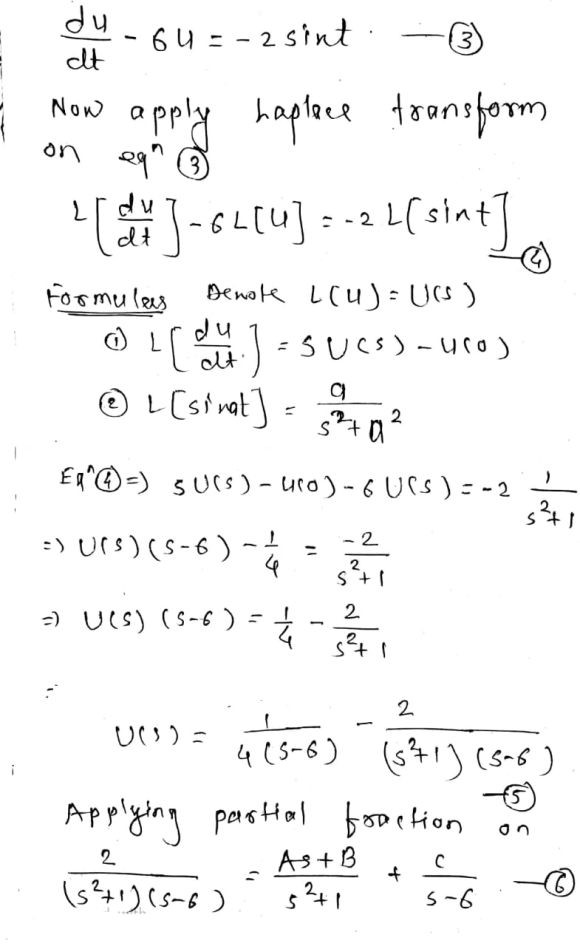 du/dt - 6u = -2 sint. —③
Now apply Laplace transform
on eqⁿ ③
L[du/dt] - 6L[u] = -2 L[sint] —④
Formulas Denote L(u) = U(s)
① L[du/dt.] = sU(s) - u(0)
② L[sinat] = a/(s²+a²)
Eqⁿ④ => sU(s) - u(0) - 6U(s) = -2 1/(s²+1)
=> U(s)(s-6) - 1/4 = -2/(s²+1)
=> U(s)(s-6) = 1/4 - 2/(s²+1)
U(s) = 1/(4(s-6)) - 2/((s²+1)(s-6)) —⑤
Applying partial fraction on
2/((s²+1)(s-6)) = (As+B)/(s²+1) + c/(s-6). —⑥